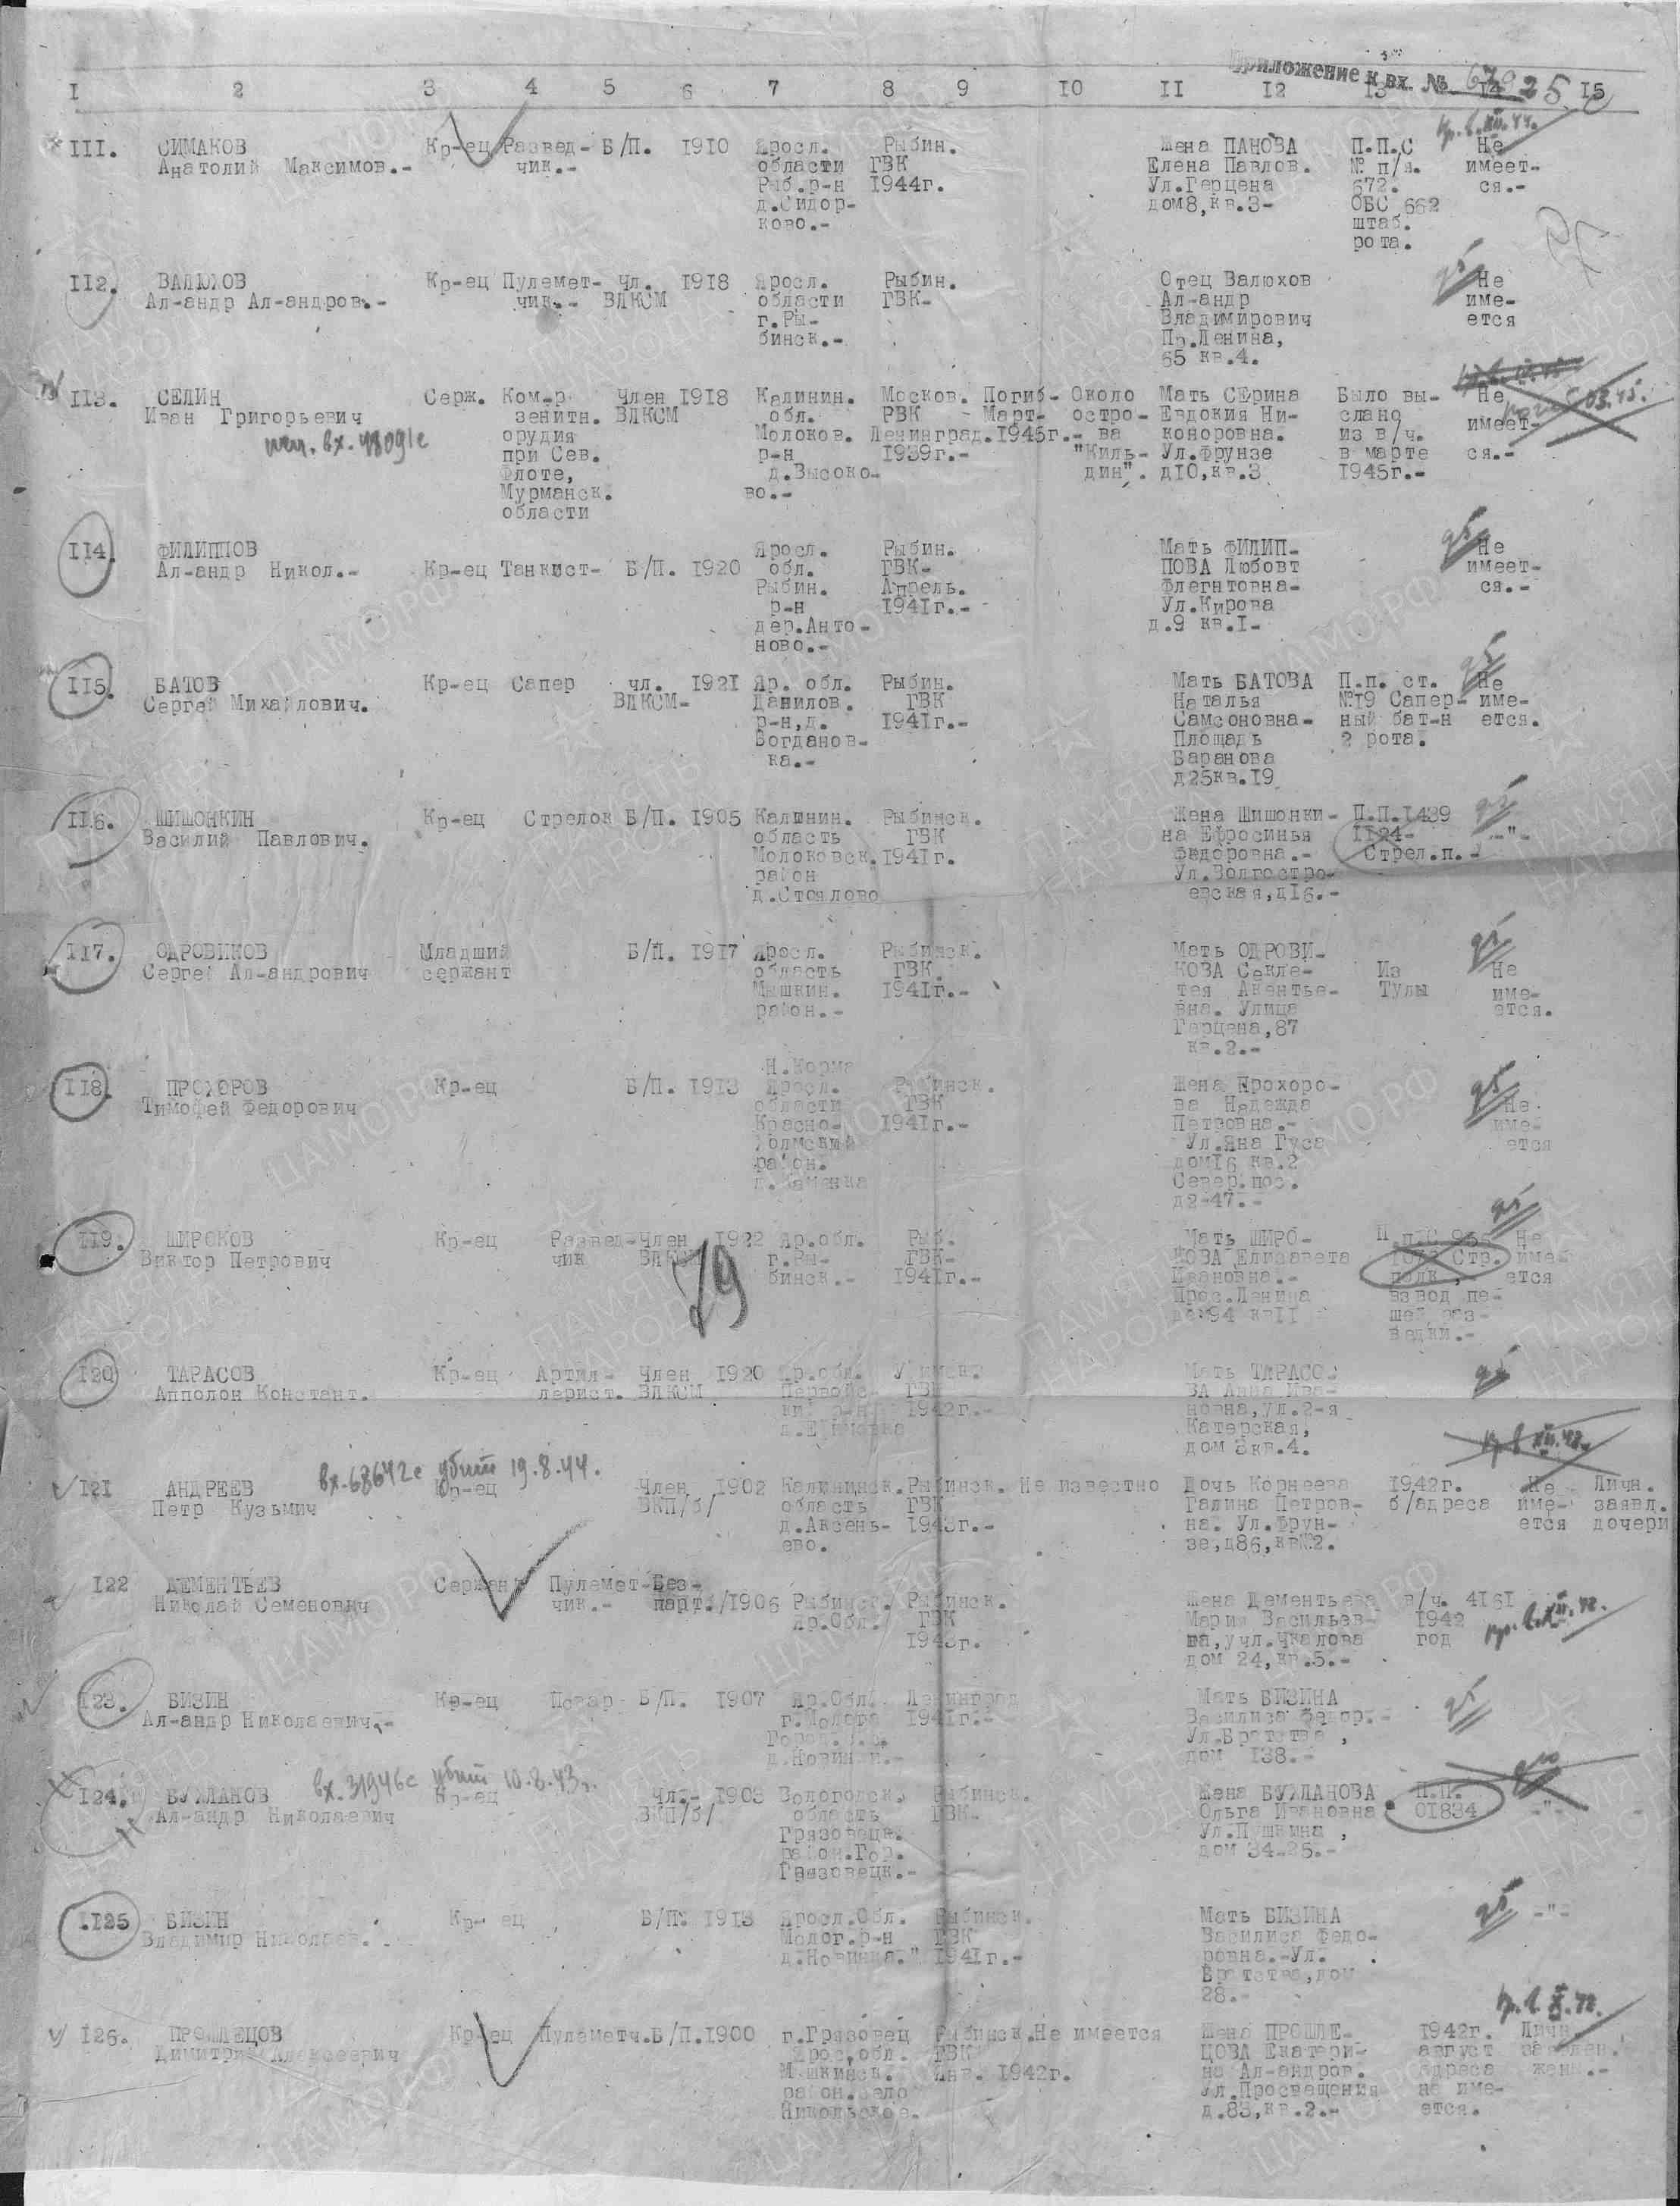 Приложение к вх. №
I 2 3 4 5 6 7 8 9 10 11 12 13 14 15
III. СИМАКОВ Кр-ец Развед- Б/П. 1910 Яросл. Рыбин. Жена ПАНОВА П.П.С Не
Анатолий Максимов.- чик.- области ГВК Елена Павлов. № п/я. имеет-
Рыб.р-н 1944г. Ул.Герцена 672. ся.-
д.Сидор- дом8,кв.3- ОБС 662
ково.- штаб.
рота.
II2. ВАЛЮХОВ Кр-ец Пулемет- Чл. 1918 Яросл. Рыбин. Отец Валюхов Не
Ал-андр Ал-андров.- чик.- ВЛКСМ области ГВК- Ал-андр име-
г.Ры- Владимирович ется
бинск.- Пр.Ленина,
65 кв.4.
II3. СЕЛИН Серж. Ком-р Член 1918 Калинин. Москов. Погиб- Около Мать СЕРИНА Было вы- Не
Иван Григорьевич зенитн. ВЛКСМ обл. РВК Март- остро- Евдокия Ни- слано имеет-
орудия Молоков. Ленинград. 1945г.- ва коноровна. из в/ч. ся.-
при Сев. р-н 1939г.- "Киль- Ул.Фрунзе в марте
Флоте, д.Высоко- дин". д10,кв.3 1945г.-
Мурманск. во.-
области
II4. ФИЛИППОВ Яросл. Рыбин. Мать ФИЛИП- Не
Ал-андр Никол.- Кр-ец Танкист- Б/П. 1920 обл. ГВК- ПОВА Любовт имеет-
Рыбин. Апрель. Флегнтовна- ся.-
р-н 1941г.- Ул.Кирова
дер.Анто- д.9 кв.I-
ново.-
II5. БАТОВ Кр-ец Сапер чл. 1921 Яр. обл. Рыбин. Мать БАТОВА П.п. ст. Не
Сергей Михайлович. ВЛКСМ- Данилов. ГВК Наталья №19 Сапер- име-
р-н,д. 1941г.- Самсоновна- ный бат-н ется.
Богданов- Площадь 2 рота.
ка.- Баранова
д25кв.19
II6. ШИШОНКИН Кр-ец Стрелок Б/П. 1905 Калинин. Рыбинск. Жена Шишонки- П.П.1439
Василий Павлович. область ГВК на Ефросинья 1124- -"-
Молоковск. 1941г. Федоровна.- Стрел.п.-
район Ул.Волгостро-
д.Стоялово евская,д16.-
II7. ОДРОВИКОВ Младший Б/П. 1917 Яросл. Рыбинск. Мать ОДРОВИ-
Сергей Ал-андрович сержант область ГВК. КОВА Секле- Из Не
Мышкин. 1941г.- тея Авентье- Тулы име-
район.- вна. Улица ется.
Герцена,87
кв.2.-
Н.Корма
II8. ПРОХОРОВ Кр-ец Б/П. 1913 Яросл. Рыбинск. Жена Прохоро-
Тимофей Федорович области ГВК ва Надежда Не
Красно- 1941г.- Петровна.- име-
холмский Ул.Яна Гуса ется
район. дом16 кв.2
д.Каменка Север.пос.
д2-47.-
II9. ШИРОКОВ Кр-ец Развед- Член 1922 Яр.обл. Рыб. Мать ШИРО- Не
Виктор Петрович чик ВЛКСМ г.Ры- ГВК- КОВА Елизавета Стр. име-
бинск.- 1941г.- Ивановна.- полк, ется
Прос.Ленина взвод пе-
дом94 квII шей раз-
ведки.-
79
I20 ТАРАСОВ Кр-ец Артил- Член 1920 Яр.обл. Мать ТАРАСО-
Апполон Констант. лерист. ВЛКСМ ГВК ВА Анна Ива-
1942г.- новна,ул.2-я
Катерская,
дом 3кв.4.
вх.68642с убит 19.8.44.
I21 АНДРЕЕВ Кр-ец Член 1902 Калининск. Рыбинск. Не известно Дочь Корнеева 1942г. Не Личн.
Петр Кузьмич ВКП/б/ область ГВК Галина Петров- б/адреса име- заявл.
д.Аксень- 1943г.- на. Ул.Фрун- ется дочери
ево. зе,д86,кв№2.
I22 ДЕМЕНТЬЕВ Сержант Пулемет- Без-
Николай Семенович чик.- парт./1906 Рыбинск. Рыбинск. Жена Дементьева в/ч. 4161
Яр.Обл. ГВК Мария Васильев- 1942
1943г. на,учл.Чкалова год
дом 24,кв.5.-
I23. БИЗИН Кр-ец Повар Б/П. 1907 Яр.Обл. Ленинград Мать БИЗИНА
Ал-андр Николаевич.- г.Молога 1941г.- Василиса Федор.-
Ул.Братства,
д.Новинки.- дом 138.-
вх.31946с убит 10.8.43г.
I24. БУХЛАНОВ Кр-ец Чл.- 1903 Вологодск. Рыбинск. Жена БУХЛАНОВА П.П.
Ал-андр Николаевич ВКП/б/ область ГВК. Ольга Ивановна 01834 -"-
Грязовецк. Ул.Пушкина,
район.Гор. дом 34-25.-
Грязовецк.-
I25 БИЗИН Кр- ец Б/П. 1913 Яросл.Обл. Рыбинск. Мать БИЗИНА -"-
Владимир Николаев. Молог.р-н ГВК Василиса Федо-
д.Новинка." 1941г.- ровна.-Ул.
Братства,дом
28.-
I26. ПРОШЛЕЦОВ Кр-ец Пулеметч. Б/П. 1900 г.Грязовец Рыбинск. Не имеется Жена ПРОШЛЕ- 1942г. Личн.
Димитрий Алексеевич Ярос,обл. ГВК ЦОВА Екатери- август заявлен.
Мышкинск. Янв. 1942г. на Ал-андров. адреса жены.-
район.село Ул.Просвещения не име-
Никольское. д.83,кв.2.- ется.